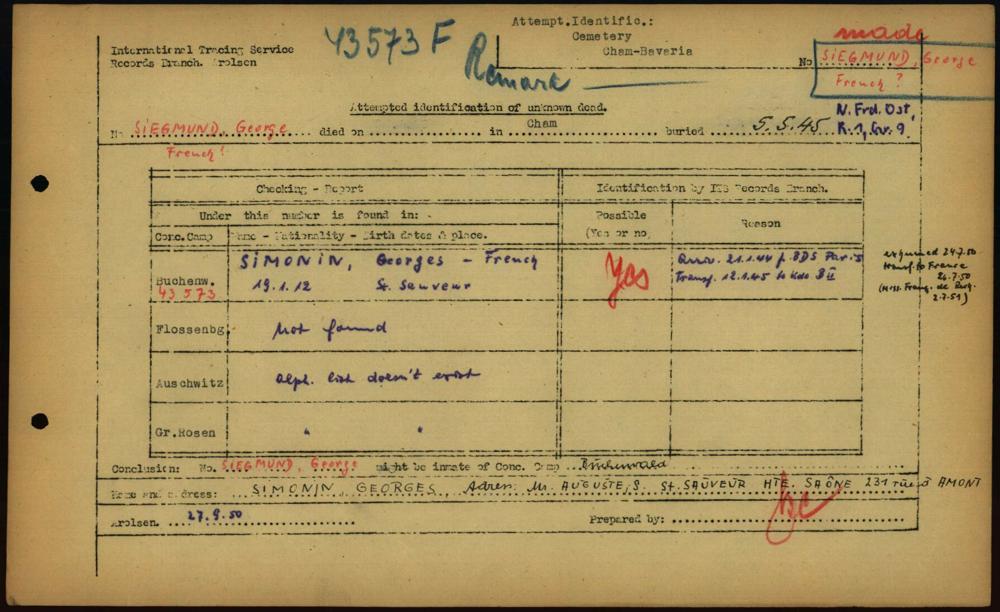 43573 F
Remark
Attempt.Identific.:
Cemetery
Cham-Bavaria
made
No SIEGMUND, George
French ?
International Tracing Service
Records Branch. Arolsen
Attempted identification of unknown dead.
N. Frd. Ost,
R. 1, Gr. 9
No SIEGMUND, George died on in Cham buried 5.5.45
French?
Checking - Report
Identification by ITS Records Branch.
Under this number is found in:
Possible
(Yes or no)
Reason
Conc.Camp
Name - Nationality - Birth dates & place.
Buchenw.
43573
SIMONIN, Georges - French
19.1.12 St. Sauveur
Yes
21.1.44 f. BDS Paris
Transf. 12.1.45 to Kdo B II
exhumed 24.7.50
transf. to France
24.7.50
(Miss. Franç. de Rech.
2.7.51)
Flossenbg.
Not found
Auschwitz
alph. list doesn't exist
Gr.Rosen
" "
Conclusion: No. SIEGMUND, George might be inmate of Conc. Camp Buchenwald
Name and address: SIMONIN, GEORGES, Adress: M. AUGUSTE, S. St. SAUVEUR HTE. SAÔNE 231 rue d'AMONT
Arolsen. 27.9.50
Prepared by: